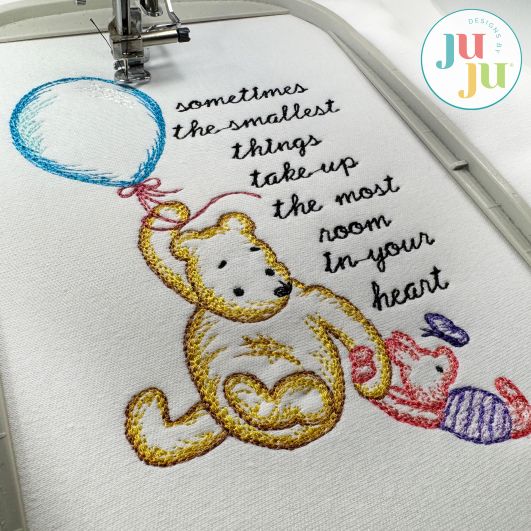 DESIGNS BY
JU
JU
sometimes
the smallest
things
take up
the most
room
in your
heart